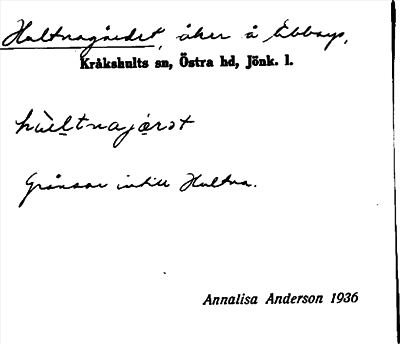 Hultnagärdet, åker å Ebbarp,
Kråkshults sn, Östra hd, Jönk. l.
hùltnajærət
Gränsar intill Hultna.
Annalisa Anderson 1936